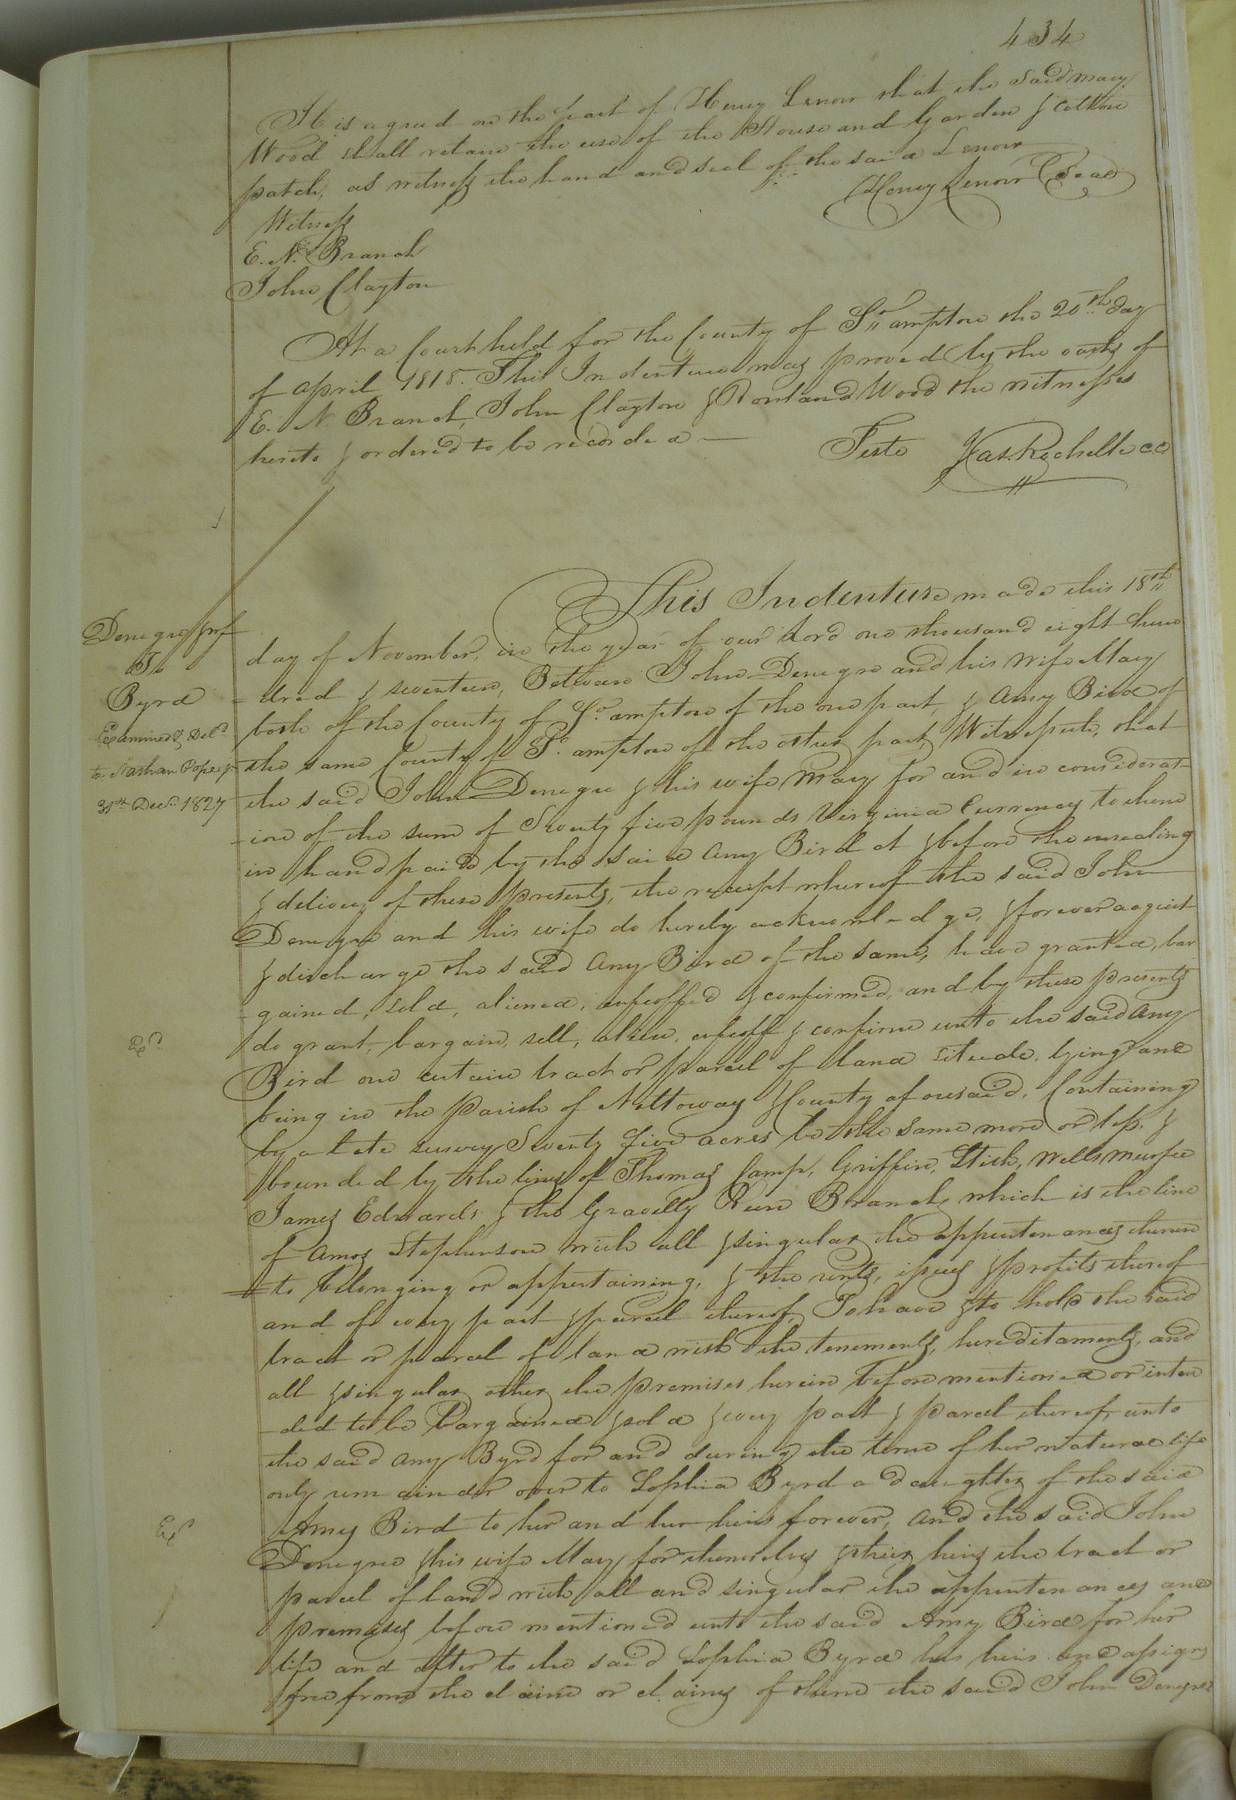 434
It is agreed on the part of Henry Lenow that the said Mary
Wood shall retain the use of the House and Garden & Cotton
patch, as witness the hand and seal of the said Lenow
Henry Lenow (Seal)
Witness
E. N. Branch
John Clayton
At a Court held for the County of So.ampton the 20th day
of April 1818. This Indenture was proved by the oaths of
E. N. Branch, John Clayton & Rowland Wood the witnesses
hereto & ordered to be recorded —
Teste Jas. Rochelle CC
This Indenture made this 18th
day of November, in the year of our Lord one thousand eight hun
-dred & seventeen, Between John Denegre and his wife Mary
both of the County of So.ampton of the one part, & Amy Bird of
the same County of So.ampton of the other part, Witnesseth, that
the said John Denegre & his wife Mary for and in considerat-
-ion of the sum of Seventy five pounds Virginia Currency to them
in hand paid by the said Amy Bird at & before the ensealing
& delivery of these presents, the receipt whereof the said John
Denegre and his wife do hereby acknowledge, & forever acquit
& discharge the said Amy Bird of the same, have granted, bar
-gained, sold, aliened, enfeoffed & confirmed, and by these presents
do grant, bargain, sell, alien, enfeoff & confirm unto the said Amy
Bird one certain tract or parcel of land situate, lying and
being in the Parish of Nottoway & County aforesaid, Containing
by a late survey Seventy five acres be the same more or less, &
bounded by the lines of Thomas Camp, Griffin, Stith, Wells
James Edwards & the Gravelly Run Branch, which is the line
of Amos Stephenson with all & singular the appurtenances there
-to belonging or appertaining, & the rents, issues & profits thereof
and of every part & parcel thereof, To have & to hold the said
tract or parcel of land with the tenements, hereditaments, and
all & singular other the premises herein before mentioned or inten
-ded to be bargained & sold & every part & parcel thereof, unto
the said Amy Byrd for and during the term of her natural life
only remainder over to Sophia Byrd a daughter of the said
Amy Bird to her and her heirs forever, And the said John
Denegre & his wife Mary for themselves & their heirs the tract or
parcel of land with all and singular the appurtenances and
premises before mentioned unto the said Amy Bird for her
life and after to the said Sophia Byrd her heirs and assigns
free from the claim or claims of them the said John Denegre
Denegre &
To
Byrd
Examined & Deld.
to Nathan Pope
31st Decr. 1827
Ex.
Ex.